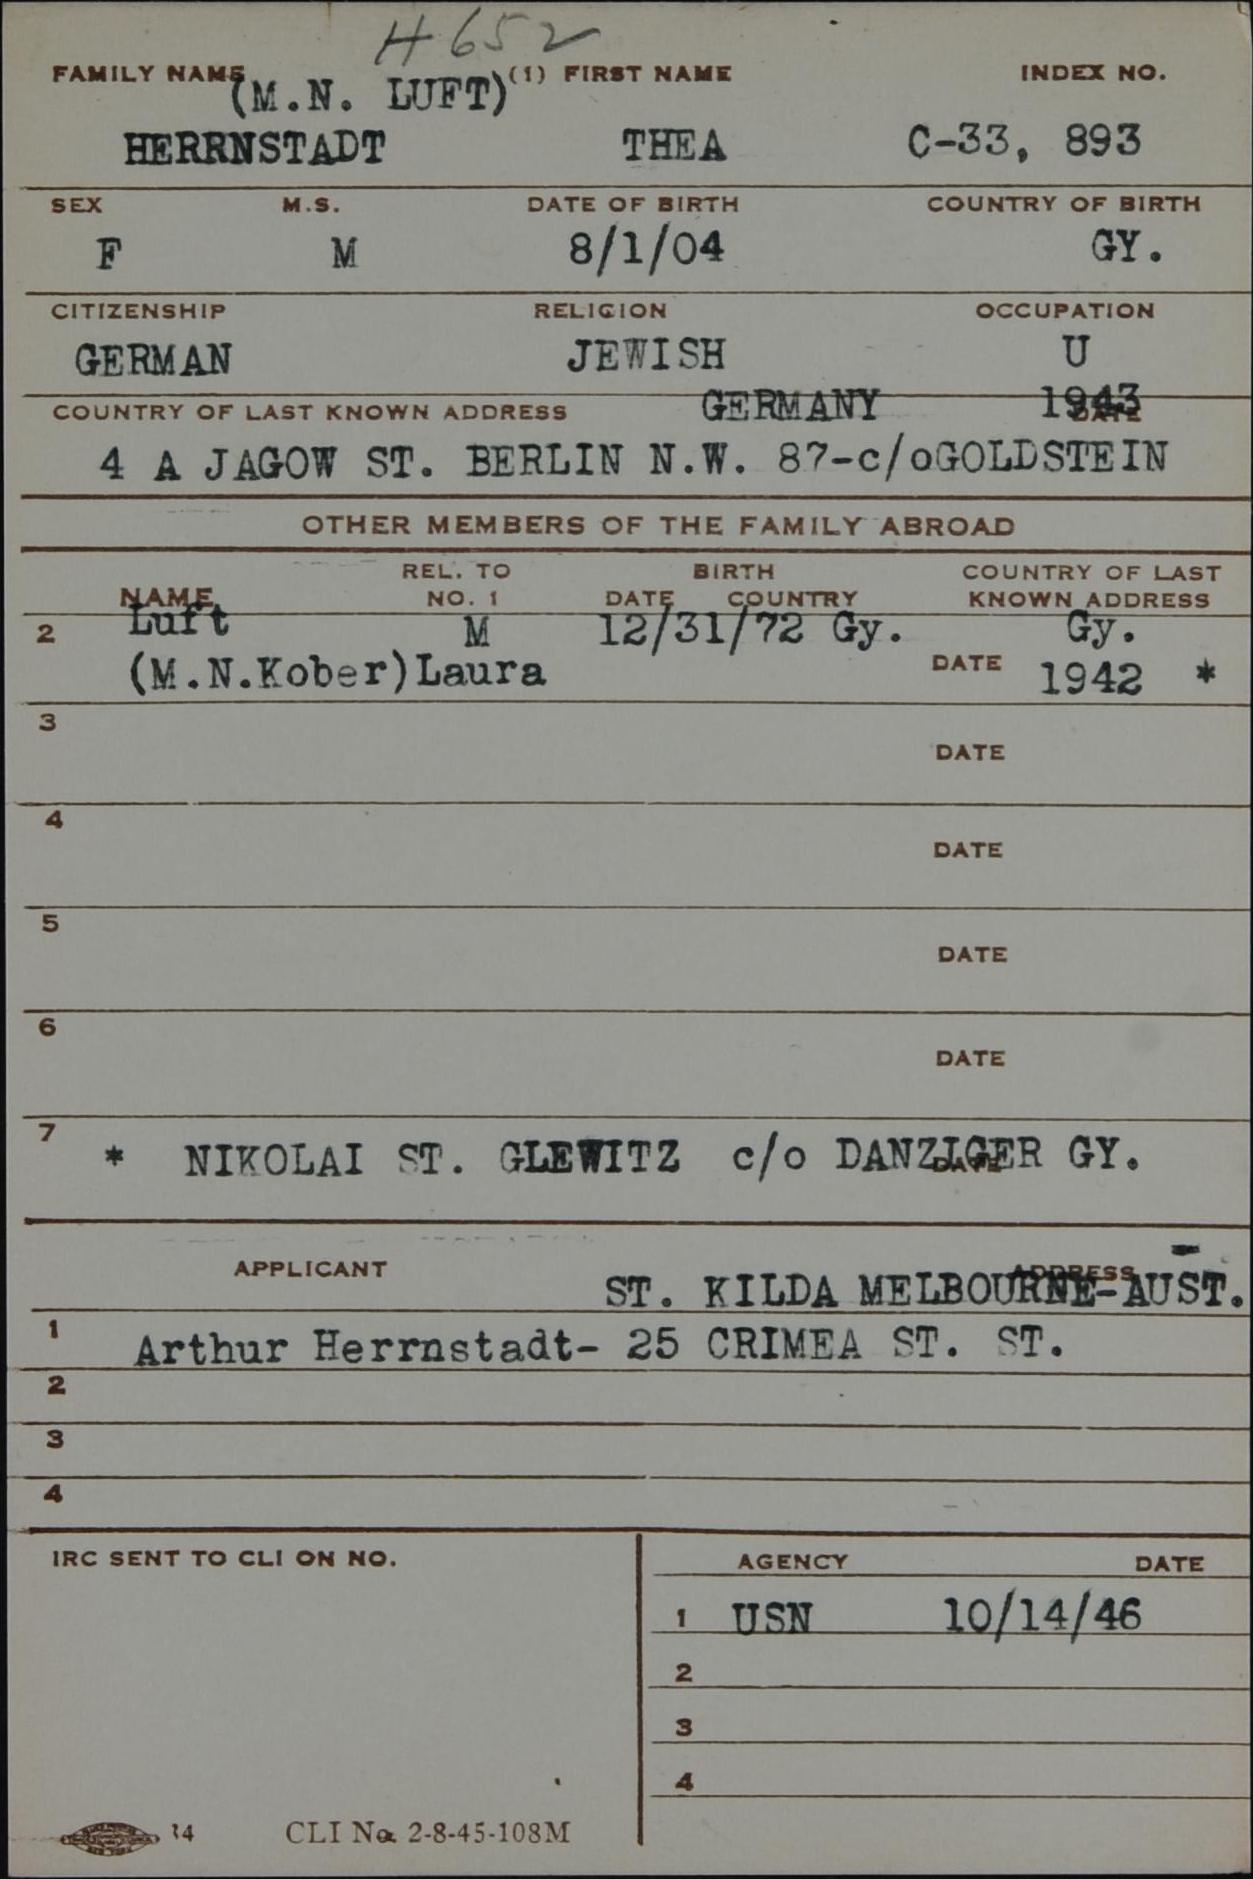 H 652
FAMILY NAME (1) FIRST NAME INDEX NO.
(M.N. LUFT)
HERRNSTADT THEA C-33, 893
SEX M.S. DATE OF BIRTH COUNTRY OF BIRTH
F M 8/1/04 GY.
CITIZENSHIP RELIGION OCCUPATION
GERMAN JEWISH U
COUNTRY OF LAST KNOWN ADDRESS GERMANY DATE 1943
4 A JAGOW ST. BERLIN N.W. 87-c/oGOLDSTEIN
OTHER MEMBERS OF THE FAMILY ABROAD
REL. TO BIRTH COUNTRY OF LAST
NAME NO. 1 DATE COUNTRY KNOWN ADDRESS
2 Luft M 12/31/72 Gy. Gy.
(M.N.Kober)Laura DATE 1942 *
3
DATE
4
DATE
5
DATE
6
DATE
7 * NIKOLAI ST. GLEWITZ c/o DANZIGER GY.
DATE
APPLICANT ADDRESS
ST. KILDA MELBOURNE-AUST.
1 Arthur Herrnstadt- 25 CRIMEA ST. ST.
2
3
4
IRC SENT TO CLI ON NO. AGENCY DATE
1 USN 10/14/46
2
3
4
CLI No. 2-8-45-108M